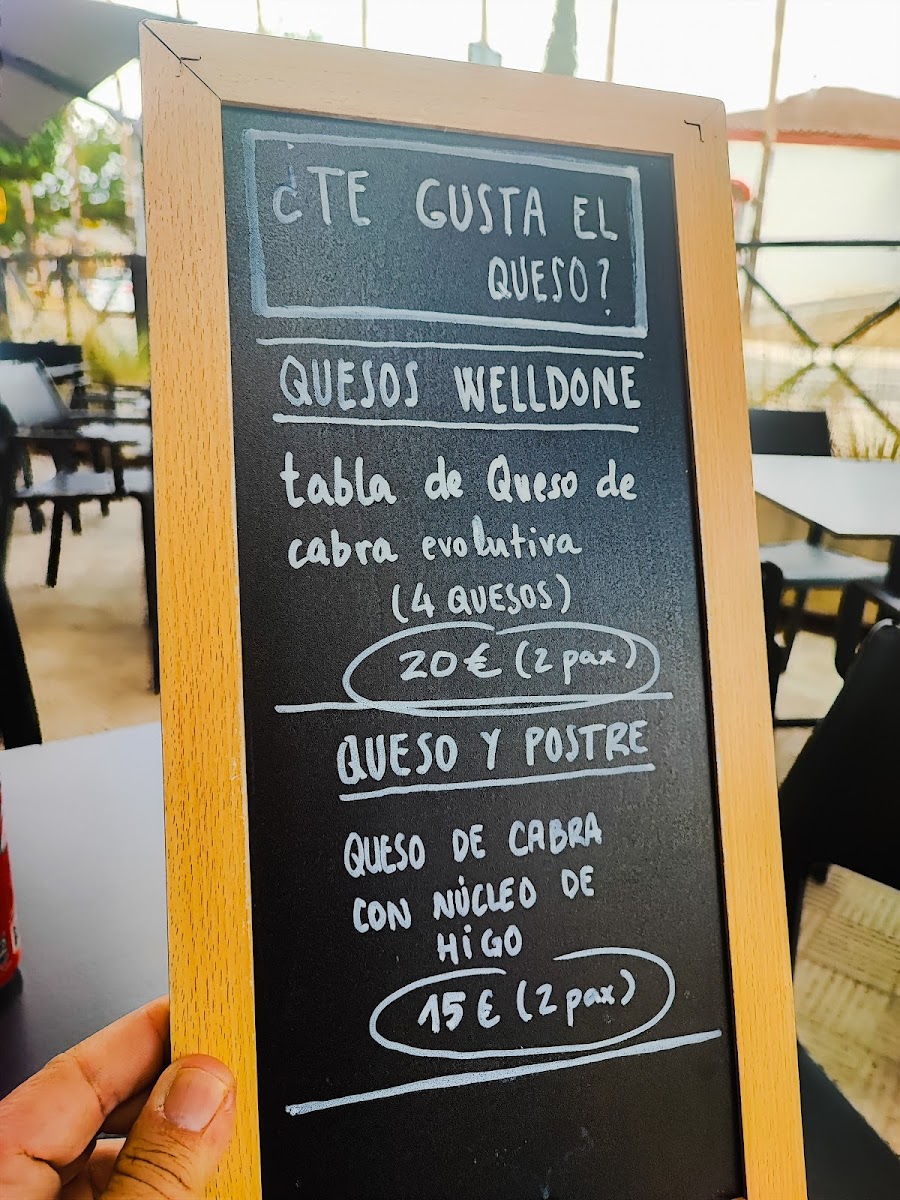 ¿TE GUSTA EL
QUESO?
QUESOS WELLDONE
tabla de Queso de
cabra evolutiva
(4 QUESOS)
20€ (2 pax)
QUESO Y POSTRE
QUESO DE CABRA
CON NÚCLEO DE
HiGO
15€ (2 pax)